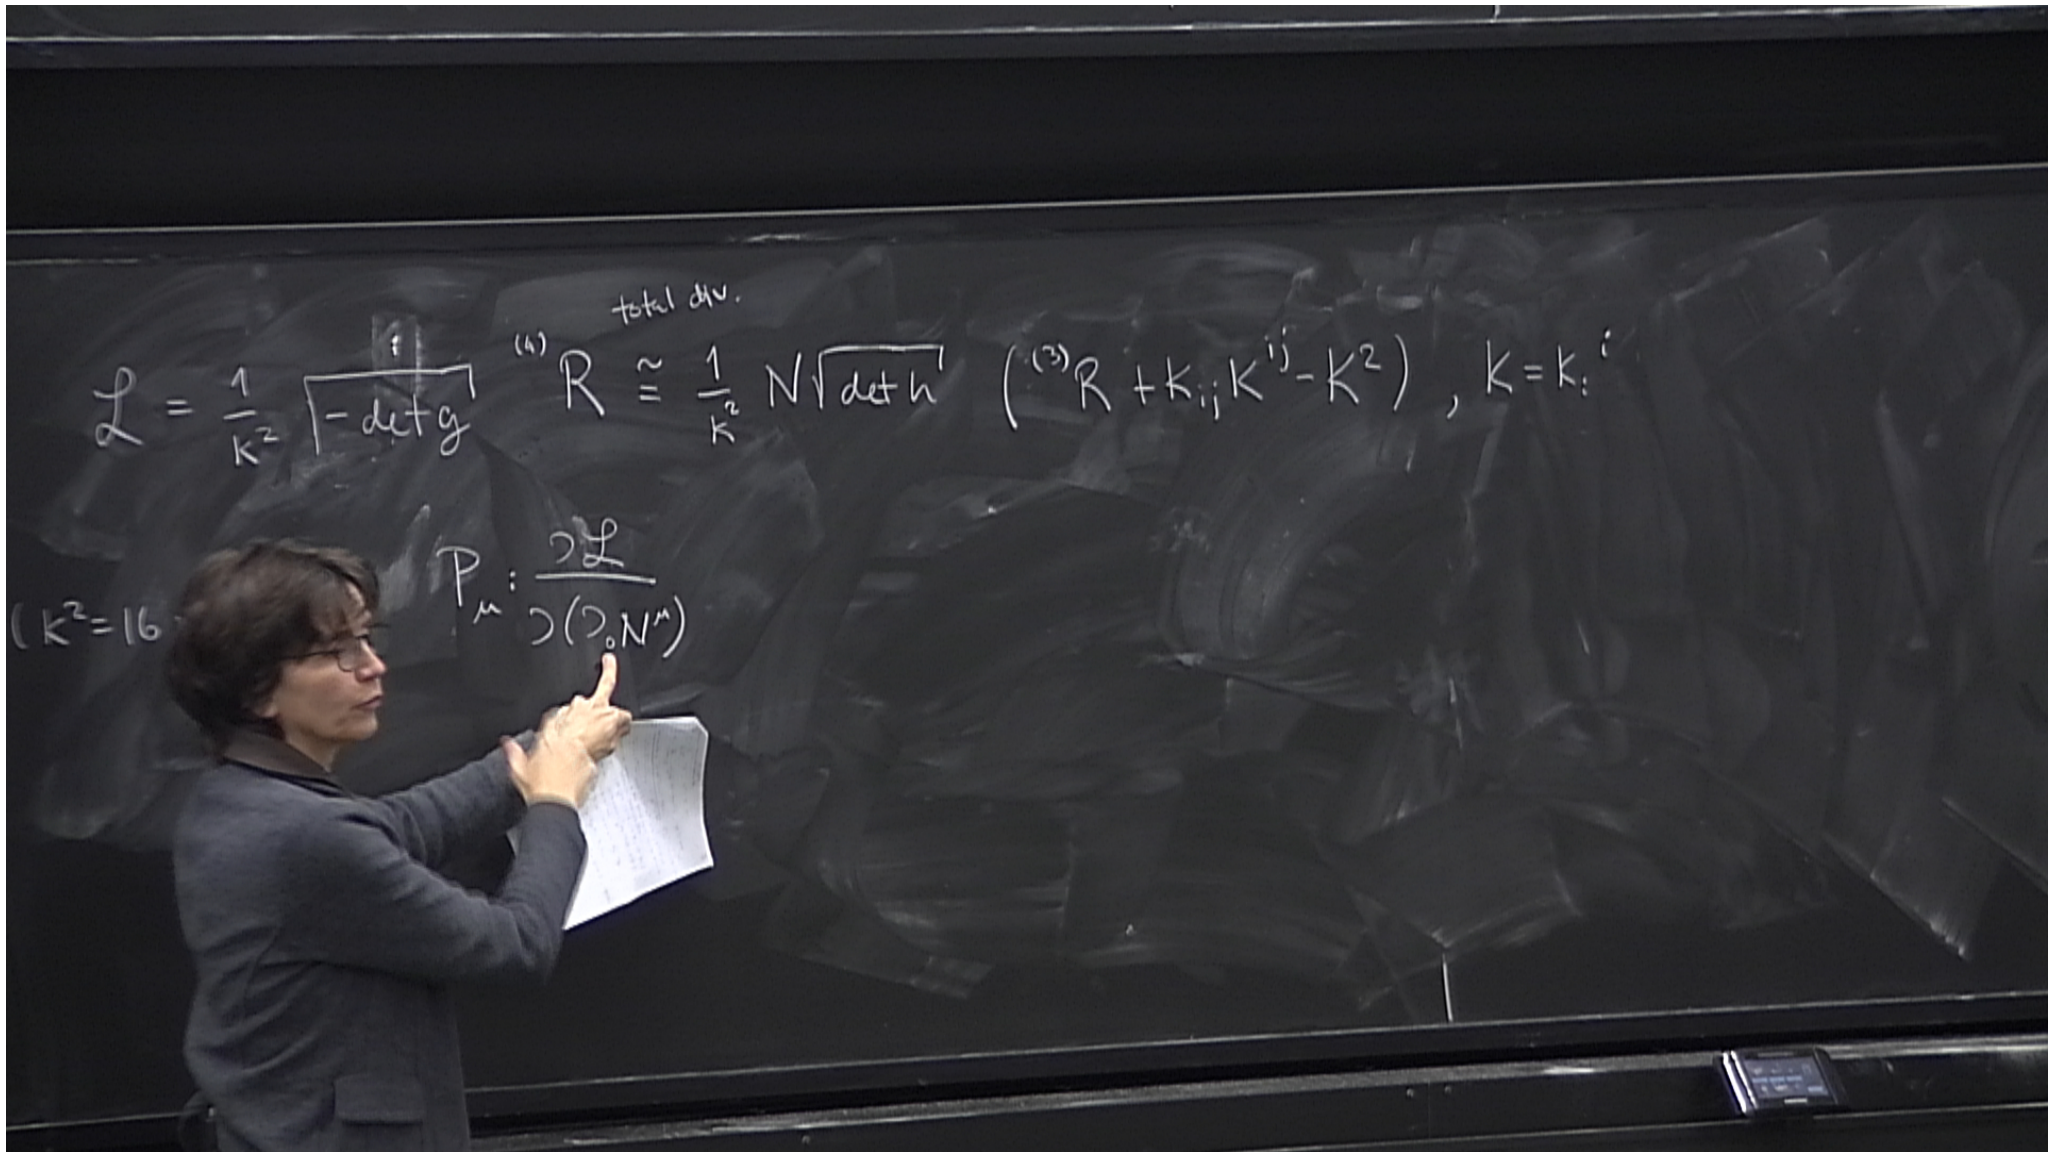 total div.
ℒ = 1/κ² √(-det g) ⁽⁴⁾R ≅ 1/κ² N√(det h) (⁽³⁾R + K_{ij}K^{ij} - K²) , K = K_i^i
P_μ : ∂ℒ/∂(∂₀N^μ)
(κ²=16